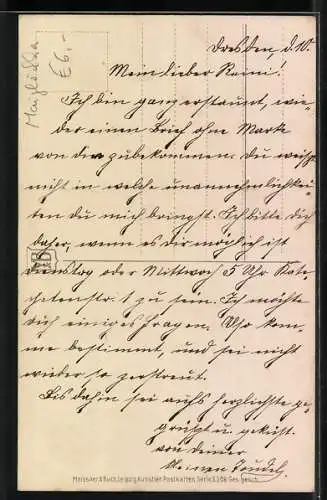 Maiglöckch
€6,-
Dresden, d. 10.
Mein lieber Reini!
Ich bin ganz erstaunt, wie-
der einen Brief ohne Marke
von dir zubekommen. Du weißt
nicht in welche unannehmlichkei-
ten du mich bringst. Ich bitte Dich
daher, wenn es Dir möglich ist
Dienstag oder Mittwoch 5 Uhr
str. 1 zu sein. Ich möchte
dich einiges fragen. Also kom-
me bestimmt, und sei nicht
wieder so zerstreut.
Bis dahin sei aufs herzlichste ge-
grüßt u. geküßt.
von deiner
Meissner & Buch, Leipzig Künstler-Postkarten, Serie Ges. gesch.